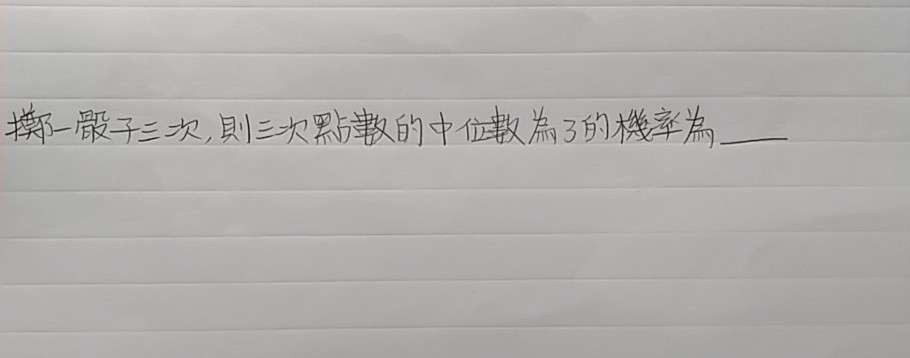 擲一骰子三次,則三次點數的中位數為3的機率為____